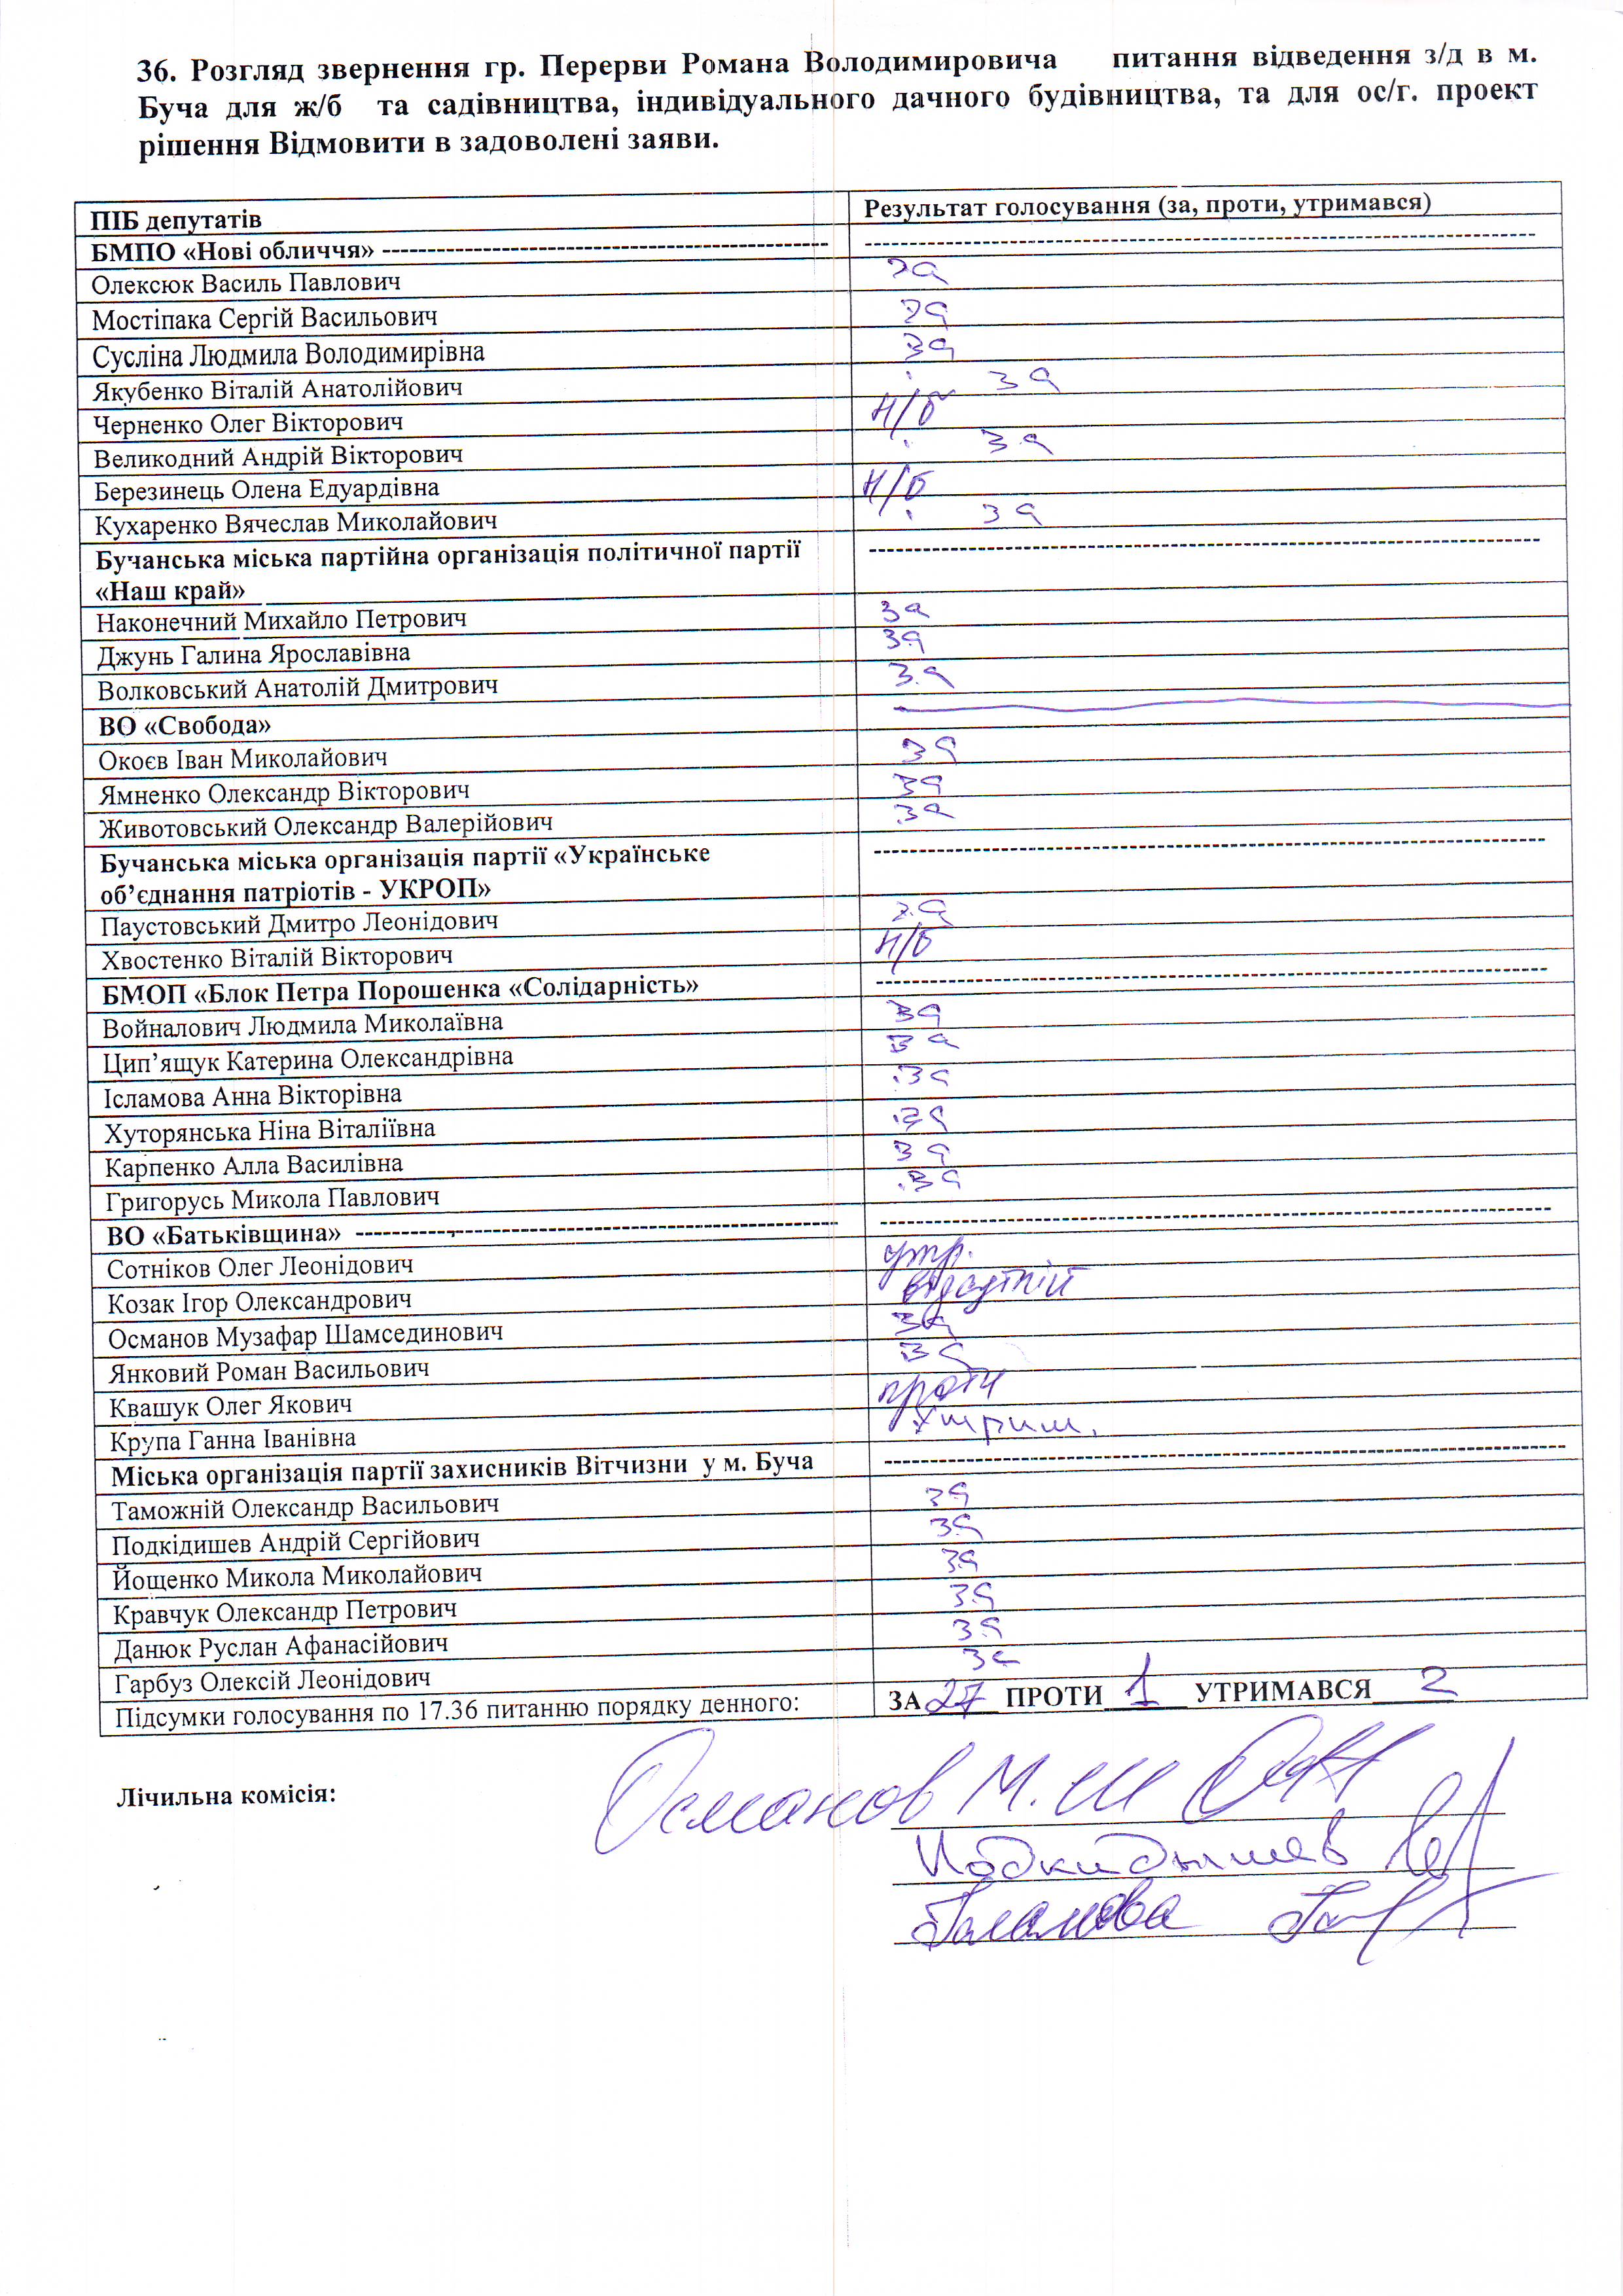 36. Розгляд звернення гр. Перерви Романа Володимировича питання відведення з/д в м.
Буча для ж/б та садівництва, індивідуального дачного будівництва, та для ос/г. проект
рішення Відмовити в задоволені заяви.
ПІБ депутатів Результат голосування (за, проти, утримався)
БМПО «Нові обличчя» ---
Олексюк Василь Павлович за
Мостіпака Сергій Васильович за
Сусліна Людмила Володимирівна за
Якубенко Віталій Анатолійович за
Черненко Олег Вікторович н/б
Великодний Андрій Вікторович за
Березинець Олена Едуардівна н/б
Кухаренко Вячеслав Миколайович за
Бучанська міська партійна організація політичної партії
«Наш край»
Наконечний Михайло Петрович за
Джунь Галина Ярославівна за
Волковський Анатолій Дмитрович за
ВО «Свобода»
Окоєв Іван Миколайович за
Ямненко Олександр Вікторович за
Животовський Олександр Валерійович за
Бучанська міська організація партії «Українське
об’єднання патріотів - УКРОП»
Паустовський Дмитро Леонідович за
Хвостенко Віталій Вікторович н/б
БМОП «Блок Петра Порошенка «Солідарність»
Войналович Людмила Миколаївна за
Цип’ящук Катерина Олександрівна за
Ісламова Анна Вікторівна за
Хуторянська Ніна Віталіївна за
Карпенко Алла Василівна за
Григорусь Микола Павлович за
ВО «Батьківщина» ---
Сотніков Олег Леонідович утр.
Козак Ігор Олександрович відсутній
Османов Музафар Шамсединович за
Янковий Роман Васильович за
Квашук Олег Якович проти
Крупа Ганна Іванівна утрим.
Міська організація партії захисників Вітчизни у м. Буча
Таможній Олександр Васильович за
Подкідишев Андрій Сергійович за
Йощенко Микола Миколайович за
Кравчук Олександр Петрович за
Данюк Руслан Афанасійович за
Гарбуз Олексій Леонідович за
Підсумки голосування по 17.36 питанню порядку денного: ЗА 27 ПРОТИ 1 УТРИМАВСЯ 2
Лічильна комісія: Османов М.Ш
Подкидышев
Галамова